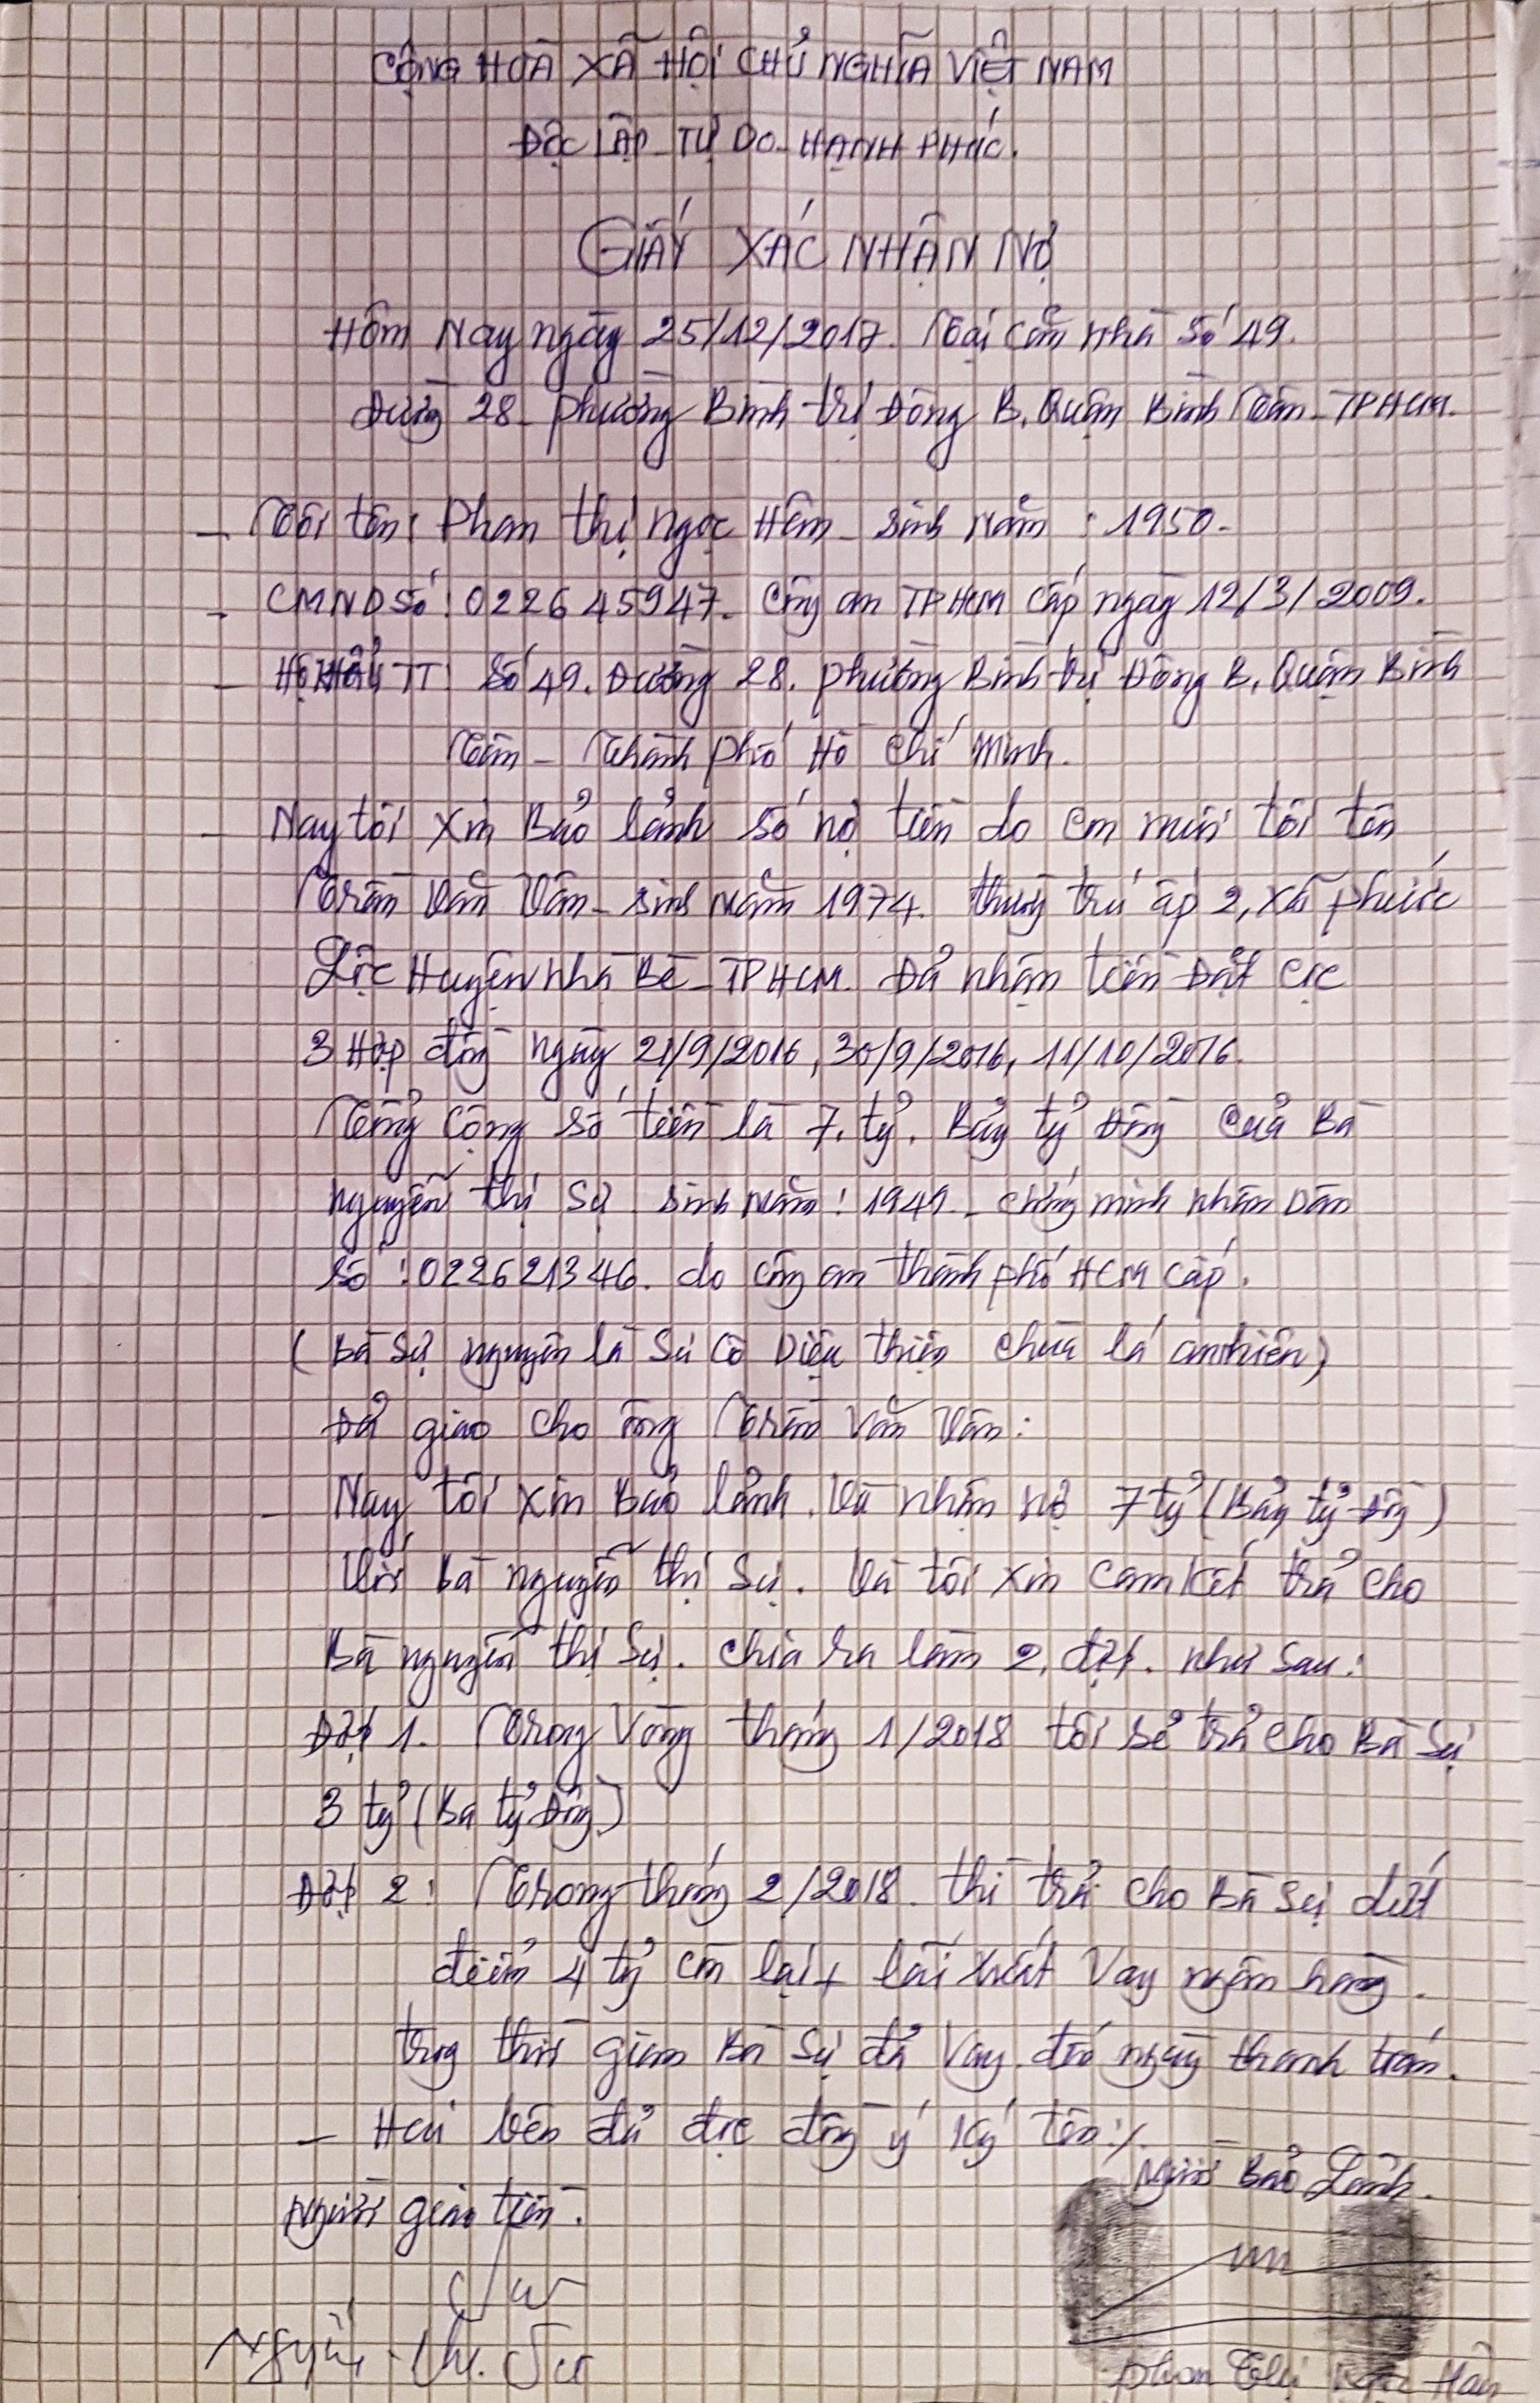 CỘNG HOÀ XÃ HỘI CHỦ NGHĨA VIỆT NAM
ĐỘC LẬP TỰ DO HẠNH PHÚC.
GIẤY XÁC NHẬN NỢ
Hôm Nay ngày 25/12/2017. Tại căn nhà số 49.
Đường 28 - phường Bình Trị Đông B, Quận Bình Tân - TPHCM.
- Tôi tên: Phan thị ngọc Hân - sinh Năm : 1950 -
- CMND số: 022645947. Công an TPHCM cấp ngày 12/3/2009.
- Hộ khẩu TT: số 49. Đường 28. phường Bình trị Đông B, Quận Bình
Tân - Thành phố Hồ Chí Minh.
- Nay tôi xin Bảo lảnh số nợ tiền do em tôi tên
Trần Văn Vân - sinh năm 1974. thường trú ấp 2, xã phước
Lộc Huyện Nhà Bè - TPHCM. Đả nhận tiền Đặt cọc
3 Hợp đồng ngày 21/9/2016, 30/9/2016, 11/10/2016.
Tổng cộng số tiền là 7. tỷ. Bảy tỷ đồng của Bà
nguyễn thị Sự sinh năm: 1949 - chứng minh nhân Dân
số: 022621346. do công an thành phố HCM cấp.
(Bà Sự nguyên là Sư Cô Diệu thiện chùa lá an nhiên)
Đả giao cho ông Trần Văn Vân:
- Nay tôi xin Bảo lảnh. Và nhận nợ 7 tỷ (Bảy tỷ đồng)
Với bà nguyễn thị Sự. Và tôi xin cam kết trả cho
Bà nguyễn thị Sự. chia ra làm 2. đợt. như sau:
Đợt 1. Trong Vòng tháng 1/2018 tôi sẻ trả cho Bà Sự
3 tỷ (Ba tỷ đồng)
Đợt 2: Trong tháng 2/2018. thì trả cho Bà Sự dứt
điểm 4 tỷ còn lại + lãi xuất Vay ngân hàng.
trong thời gian Bà Sự đả Vay đến ngày thanh toán.
- Hai bên đả đọc đồng ý ký tên:/.
Người Bảo Lảnh.
Người giao tiền.
Sự
Nguyễn Thị Sự
Phan Thị Ngọc Hân